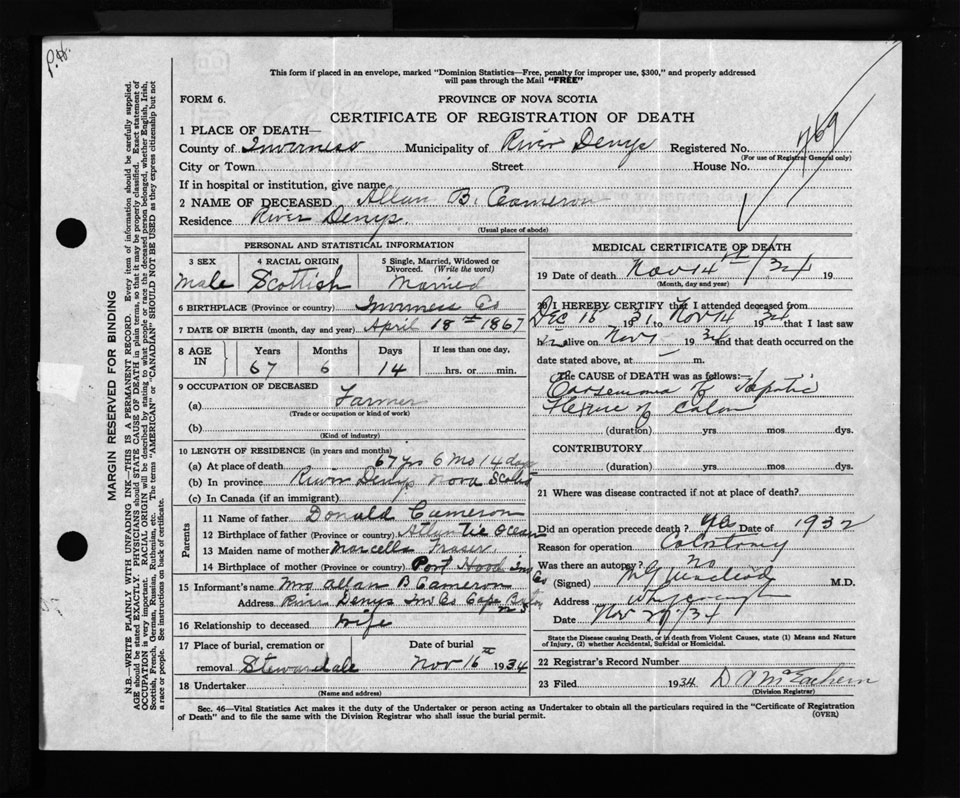 This form if placed in an envelope, marked "Dominion Statistics—Free, penalty for improper use, $300," and properly addressed
will pass through the Mail "FREE"
FORM 6.
PROVINCE OF NOVA SCOTIA
CERTIFICATE OF REGISTRATION OF DEATH
1 PLACE OF DEATH—
County of Inverness Municipality of River Denys Registered No.
(For use of Registrar General only)
City or Town Street House No.
If in hospital or institution, give name
2 NAME OF DECEASED Allan B. Cameron
Residence River Denys.
(Usual place of abode)
PERSONAL AND STATISTICAL INFORMATION
3 SEX Male
4 RACIAL ORIGIN Scottish
5 Single, Married, Widowed or Divorced. (Write the word) Married
6 BIRTHPLACE (Province or country) Inverness Co
7 DATE OF BIRTH (month, day and year) April 18th 1867
8 AGE IN
Years Months Days If less than one day,
67 6 14 hrs. or min.
9 OCCUPATION OF DECEASED
(a) Farmer
(Trade or occupation or kind of work)
(b)
(Kind of industry)
10 LENGTH OF RESIDENCE (in years and months)
(a) At place of death 67 yrs 6 Mo 14 days
(b) In province River Denys Nova Scotia
(c) In Canada (if an immigrant)
Parents
11 Name of father Donald Cameron
12 Birthplace of father (Province or country) Atlantic Ocean
13 Maiden name of mother Marcella Fraser.
14 Birthplace of mother (Province or country) Port Hood Inv Co
15 Informant's name Mrs Allan B Cameron
Address River Denys Inv Co Cape Breton N S
16 Relationship to deceased wife
17 Place of burial, cremation or Date of burial
removal Stewardale Nov 16th 1934
18 Undertaker
(Name and address)
MEDICAL CERTIFICATE OF DEATH
19 Date of death Nov 14th/34 19
(Month, day and year)
20 I HEREBY CERTIFY that I attended deceased from
Dec 16 1931 to Nov 14 1934 that I last saw
him alive on Nov 1 1934 and that death occurred on the
date stated above, at m.
The CAUSE OF DEATH was as follows:
Flexure of Colon
(duration) yrs mos dys.
CONTRIBUTORY
(duration) yrs mos dys.
21 Where was disease contracted if not at place of death?
Did an operation precede death? yes Date of 1932
Reason for operation Colostomy
Was there an autopsy? no
(Signed) Macleod M.D.
Address Whycocomagh
Date Nov 34
State the Disease causing Death, or in death from Violent Causes, state (1) Means and Nature
of Injury, (2) whether Accidental, Suicidal or Homicidal.
22 Registrar's Record Number
23 Filed 1934 D A McEachern
(Division Registrar)
Sec. 46—Vital Statistics Act makes it the duty of the Undertaker or person acting as Undertaker to obtain all the particulars required in the "Certificate of Registration
of Death" and to file the same with the Division Registrar who shall issue the burial permit.
(OVER)
MARGIN RESERVED FOR BINDING
N.B.—WRITE PLAINLY WITH UNFADING INK—THIS IS A PERMANENT RECORD. Every item of information should be carefully supplied.
AGE should be stated EXACTLY. PHYSICIANS should STATE CAUSE OF DEATH in plain terms, so that it may be properly classified. Exact statement of
OCCUPATION is very important. RACIAL ORIGIN will be described by stating to what people or race the deceased person belonged, whether English, Irish,
Scottish, French, German, Russian, Ruthenian, etc. The terms "AMERICAN" or "CANADIAN" SHOULD NOT BE USED as they express citizenship but not
a race or people. See instructions on back of certificate.